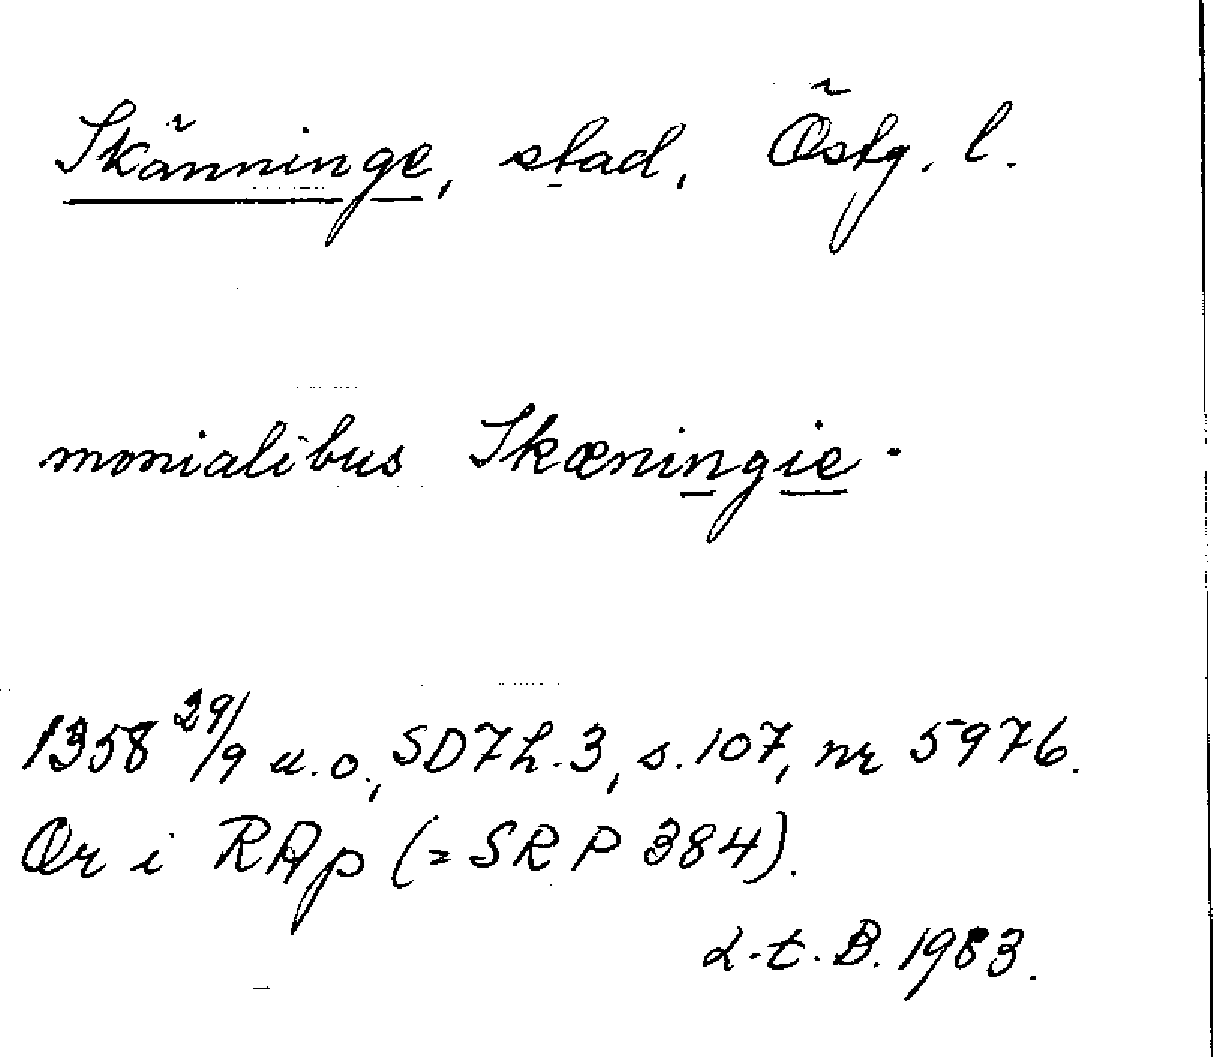 Skänninge, stad, Östg. l.
monialibus Skæningie.
1358 29/9 u.o., SD7h.3, s.107, nr 5976.
Or i RAp (=SRP 384).
L.t.B. 1983.